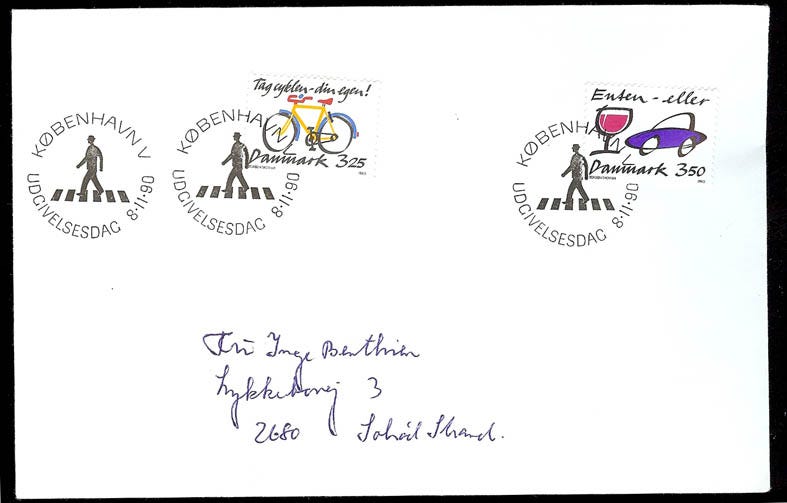 KØBENHAVN V
UDGIVELSESDAG 8·11·90
KØBENHAVN
UDGIVELSESDAG 8·11·90
Tag cyklen - din egen!
Danmark 3.25
KØBENHAVN
UDGIVELSESDAG 8·11·90
Enten - eller
Danmark 3.50
Inge Benthien
3
2680 Solrød Strand.